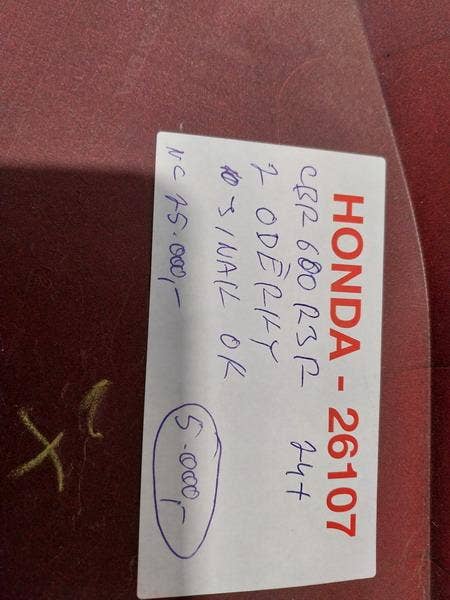 HONDA - 26107
CBR 600 R3R 24+
2 ODĚRKY
JINAK OK
NC 75.000,-
5.000,-